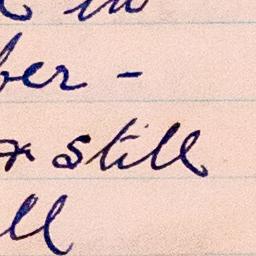 in
ber -
still
ll